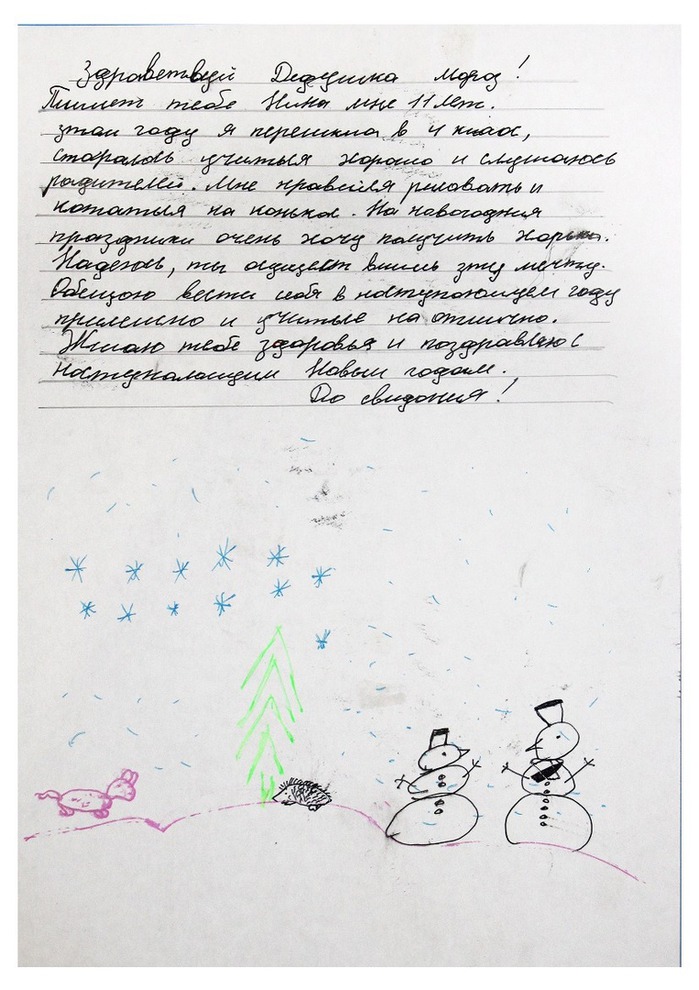 Здравствуй Дедушка мороз!
Пишет тебе Нина мне 11 лет.
этом году я перешла в 4 класс,
старалась учиться хорошо и слушаюсь
родителей. Мне нравится рисовать и
кататься на коньках. На новогодния
праздники очень хочу получить хорька.
Надеюсь, ты осуществишь эту мечту.
Обещаю вести себя в наступающем году
прилежно и учиться на отлично.
Желаю тебе здоровья и поздравляю с
наступающим Новым годом.
До свидания!